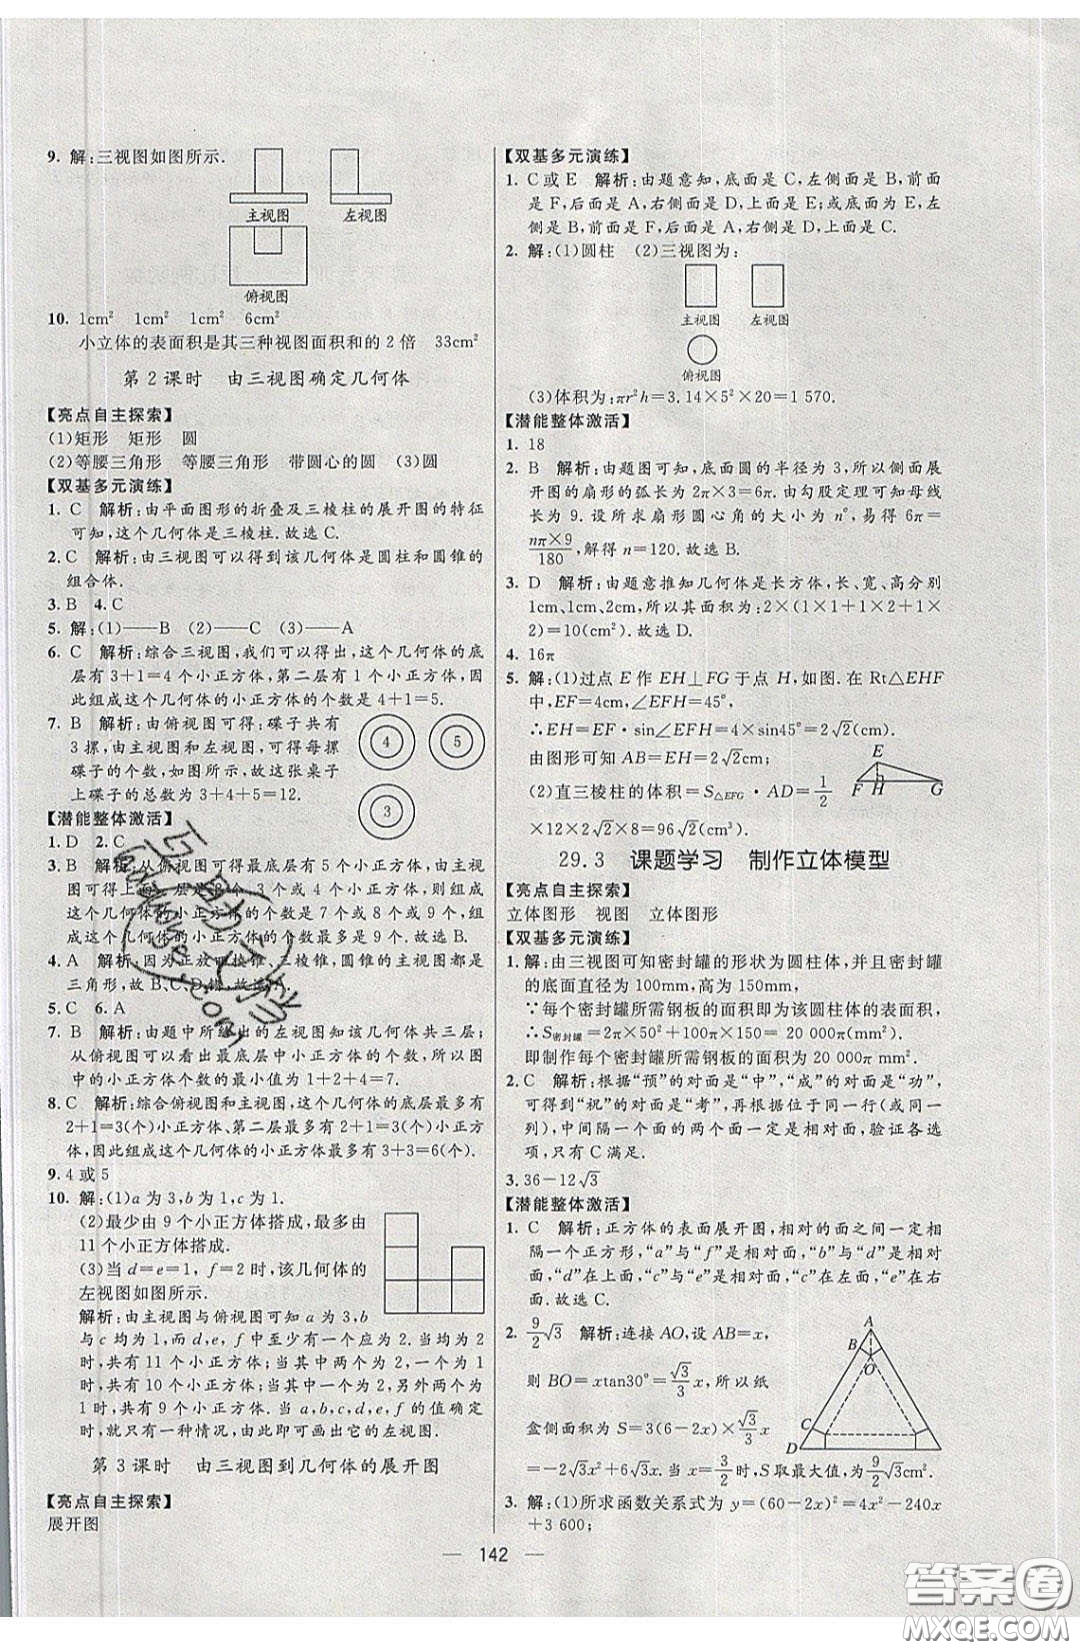 9. 解:三视图如图所示.
主视图 左视图
俯视图
10. 1cm² 1cm² 1cm² 6cm²
小立体的表面积是其三种视图面积和的2倍 33cm²
第2课时 由三视图确定几何体
【亮点自主探索】
(1)矩形 矩形 圆
(2)等腰三角形 等腰三角形 带圆心的圆 (3)圆
【双基多元演练】
1. C 解析:由平面图形的折叠及三棱柱的展开图的特征
可知,这个几何体是三棱柱.故选C.
2. C 解析:由三视图可以得到该几何体是圆柱和圆锥的
组合体.
3. B 4. C
5. 解:(1)——B (2)——C (3)——A
6. C 解析:综合三视图,我们可以得出,这个几何体的底
层有3+1=4个小正方体,第二层有1个小正方体,因
此组成这个几何体的小正方体的个数是4+1=5.
7. B 解析:由俯视图可得:碟子共有
3摞,由主视图和左视图,可得每摞
碟子的个数,如图所示,故这张桌子
上碟子的总数为3+4+5=12.
4 5
3
【潜能整体激活】
1. D 2. C
3. B 解析:从俯视图可得最底层有5个小正方体,由主
视图可得上面一层是2个、3个或4个小正方体,则组
成这个几何体的小正方体的个数是7个或8个或9个,
组成这个几何体的小正方体的个数最多是9个.故选B.
4. A 解析:因为正放四棱锥、三棱锥,圆锥的主视图都是
三角形,故B、C、D错误.故选A.
5. C 6. A
7. B 解析:由题中所给出的左视图知该几何体共三层;
从俯视图可以看出最底层中小正方体的个数,所以图
中的小正方体个数的最小值为1+2+4=7.
8. C 解析:综合俯视图和主视图,这个几何体的底层有
2+1=3(个)小正方体,第二层最多有2+1=3(个)小正方体,
因此组成这个几何体的小正方体最多有3+3=6(个).
9. 4或5
10. 解:(1)a为3,b为1,c为1.
(2)最少由9个小正方体搭成,最多由
11个小正方体搭成.
(3)当d=e=1,f=2时,该几何体的
左视图如图所示.
解析:由主视图与俯视图可知a为3,b
与c均为1,而d,e,f中至少有一个应为2.当均为2
时,共有11个小正方体;当其中两个为2,一个为1
时,共有10个小正方体;当其中一个为2,另外两个为1
时,共有9个小正方体.当a,b,c,d,e,f的值确定
时,就只有一种情况,由此即可画出它的左视图.
第3课时 由三视图到几何体的展开图
【亮点自主探索】
展开图
【双基多元演练】
1. C或E 解析:由题意知,底面是C,左侧面是B,前面
是F,后面是A,右侧面是D,上面是E;或底面是E,左
侧是B,前面是F,后面是A,右侧面是D,上面是C.
2. 解:(1)圆柱 (2)三视图为:
主视图 左视图
俯视图
(3)体积为:πr²h=3.14×5²×20=1 570.
【潜能整体激活】
1. 18
2. B 解析:由题图可知,底面圆的半径为3,所以侧面展
开图的扇形的弧长为2π×3=6π.由勾股定理可知母线
长为9.设所求扇形圆心角的大小为n°,易得6π=
nπ×9/180,解得n=120.故选B.
3. D 解析:由题意推知几何体是长方体,长、宽、高分别
1cm、1cm、2cm,所以其表面积为:2×(1×1+1×2+1×
2)=10(cm²).故选D.
4. 16π
5. 解:(1)过点E作EH⊥FG于点H,如图.在Rt△EHF
中,EF=4cm,∠EFH=45°,
∴EH=EF·sin∠EFH=4×sin45°=2√2(cm).
由图形可知AB=EH=2√2cm.
(2)直三棱柱的体积=S△EFG·AD=1/2
×12×2√2×8=96√2(cm³).
E
F H G
29.3 课题学习 制作立体模型
【亮点自主探索】
立体图形 视图 立体图形
【双基多元演练】
1. 解:由三视图可知密封罐的形状为圆柱体,并且密封罐
的底面直径为100mm,高为150mm,
∵每个密封罐所需钢板的面积即为该圆柱体的表面积,
∴S密封罐=2π×50²+100π×150=20 000π(mm²).
即制作每个密封罐所需钢板的面积为20 000π mm².
2. C 解析:根据“预”的对面是“中”,“成”的对面是“功”,
可得“祝”的对面是“考”,再根据位于同一行(或同一
列),中间隔一个面的两个面一定是对面,验证各选
项,只有C满足.
3. 36-12√3
【潜能整体激活】
1. C 解析:正方体的表面展开图,相对的面之间一定相
隔一个正方形,“a”与“f”是相对面,“b”与“d”是相对
面,“d”在上面,“c”与“e”是相对面,“c”在左面,“e”在右
面.故选C.
2. 9/2√3 解析:连接AO,设AB=x,
则BO=xtan30°=√3/3x,所以纸
盒侧面积为S=3(6-2x)×√3/3x
=-2√3x²+6√3x.当x=3/2时,S取最大值,为9/2√3cm².
A
B
O
C
D
3. 解:(1)所求函数关系式为y=(60-2x)²=4x²-240x
+3 600;
— 142 —
答案圈
MXQE.COM